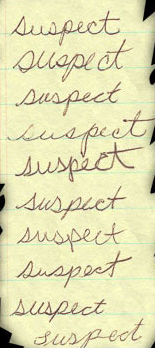 suspect
suspect
suspect
suspect
suspect
suspect
suspect
suspect
suspect
suspect